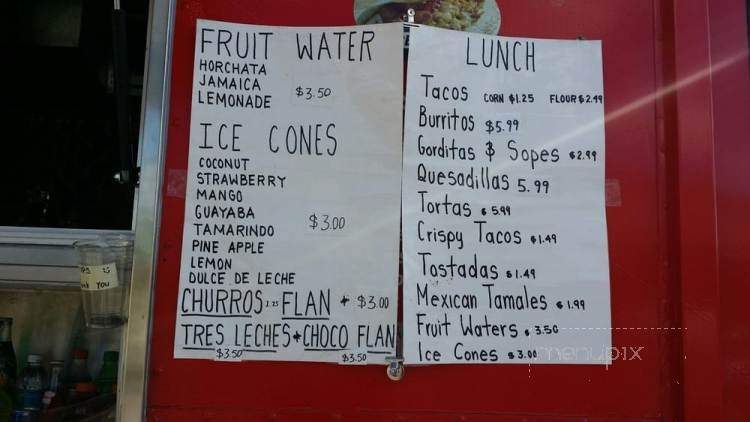 FRUIT WATER
HORCHATA
JAMAICA
LEMONADE
$3.50
ICE CONES
COCONUT
STRAWBERRY
MANGO
GUAYABA
TAMARINDO
$3.00
PINE APPLE
LEMON
DULCE DE LECHE
CHURROS 1.25 FLAN $3.00
TRES LECHES CHOCO FLAN
$3.50 $3.50
LUNCH
Tacos CORN $1.25 FLOUR $2.49
Burritos $5.99
Gorditas & Sopes $2.99
Quesadillas 5.99
Tortas $5.99
Crispy Tacos $1.49
Tostadas $1.49
Mexican Tamales $1.99
Fruit Waters $3.50
Ice Cones $3.00
YOU
menupix